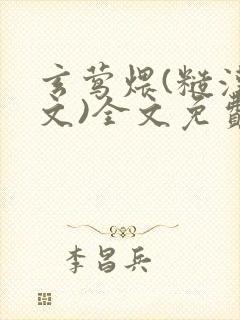 玄莺煨(糙汉
文)全文免费
李昌兵